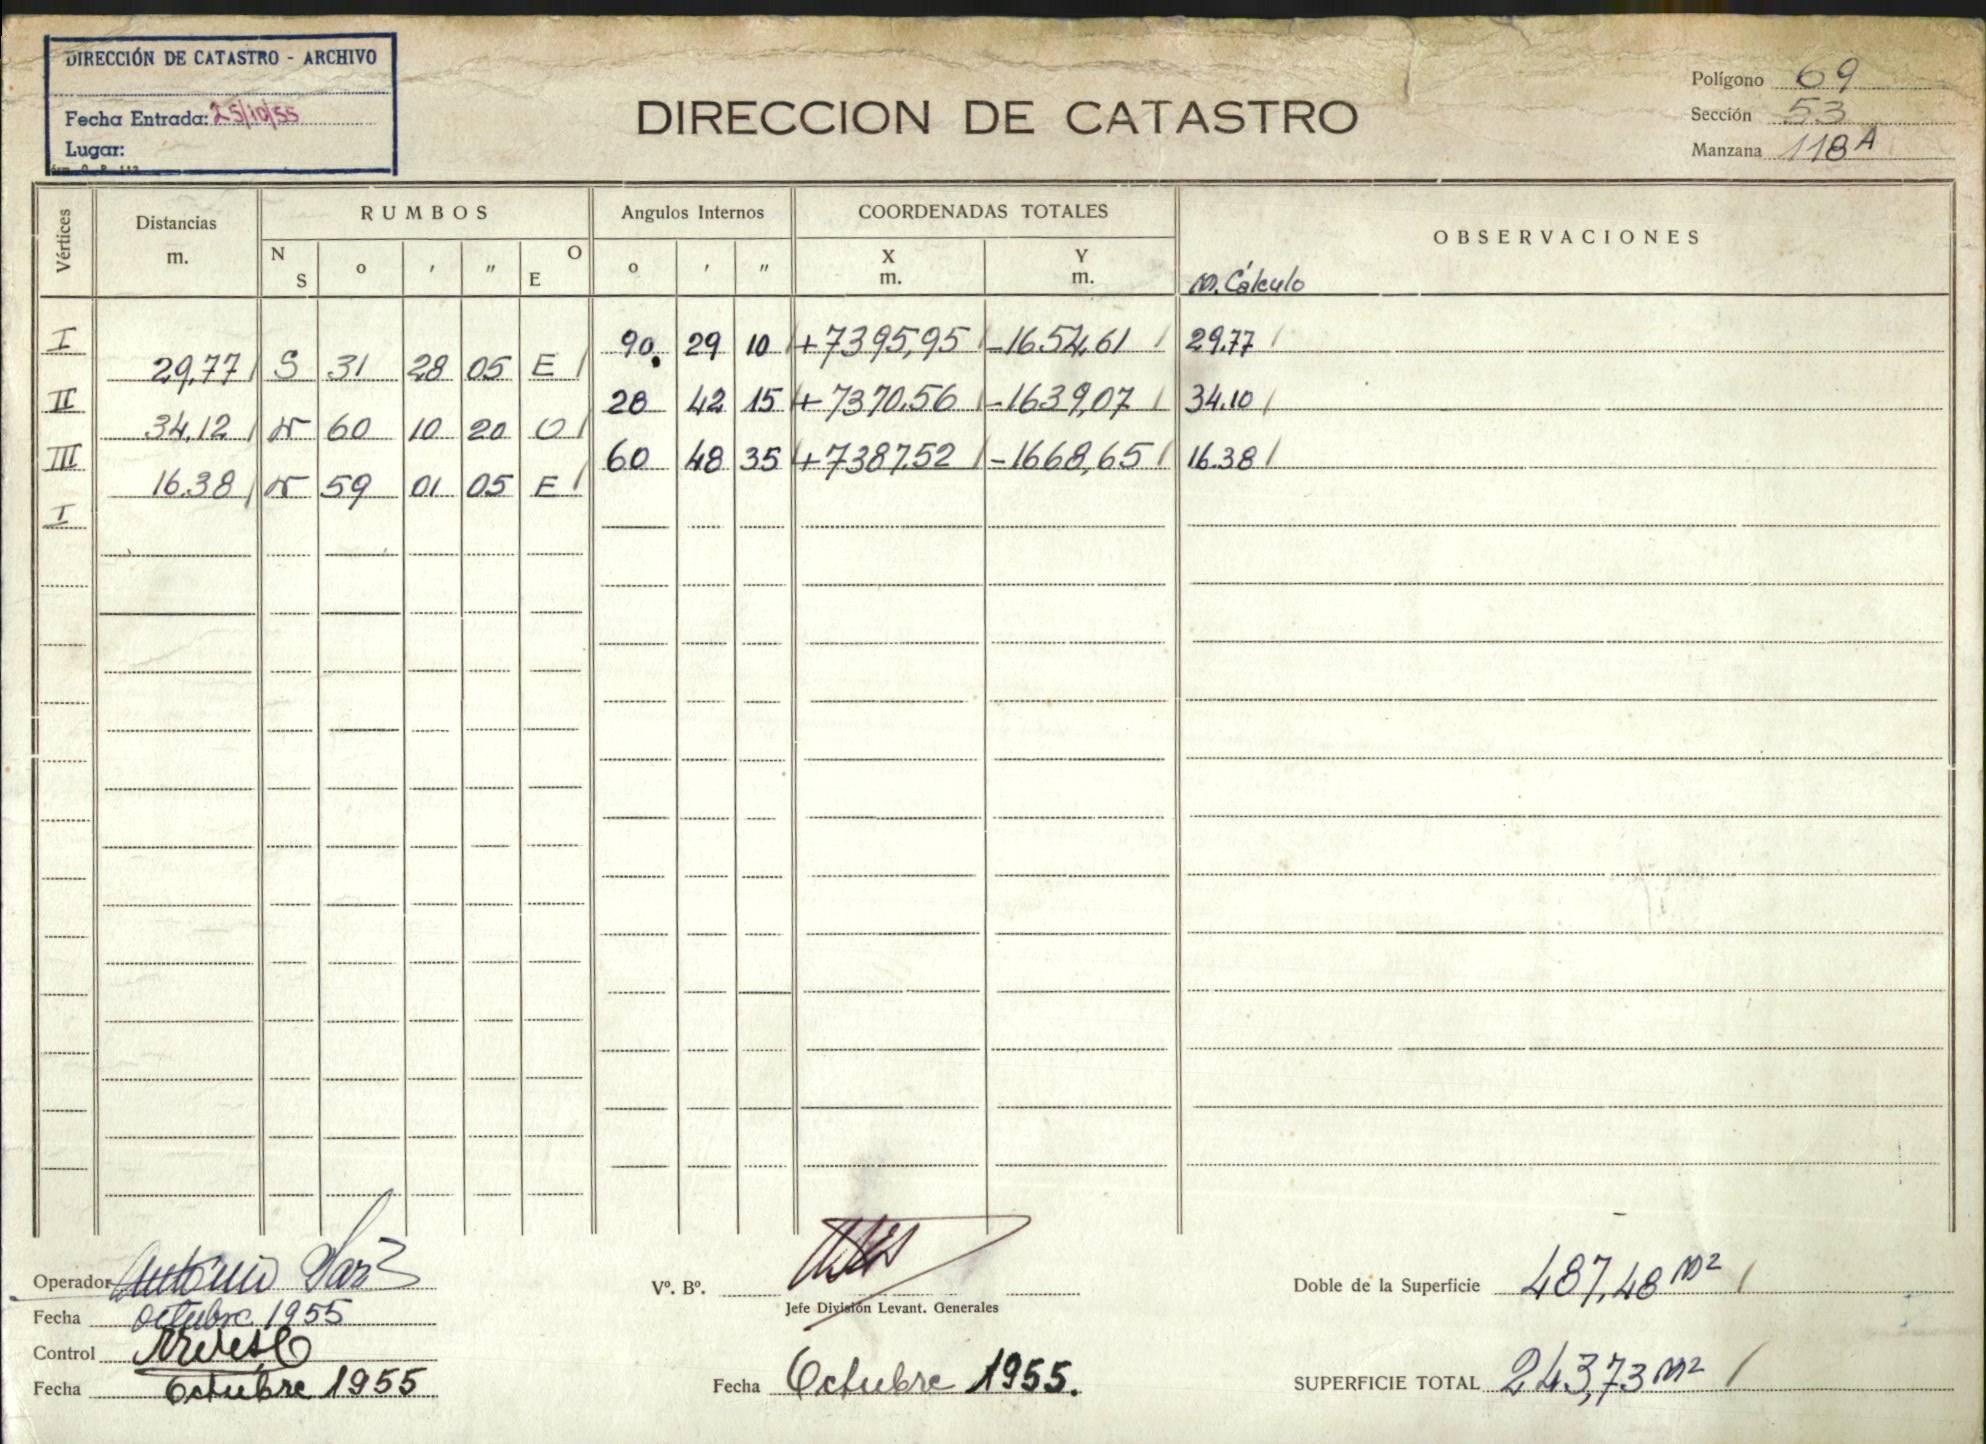 DIRECCIÓN DE CATASTRO - ARCHIVO
Fecha Entrada: 25/10/55
Lugar:
DIRECCION DE CATASTRO
Polígono 69
Sección 53
Manzana 118 A
Vértices Distancias m. RUMBOS Angulos Internos COORDENADAS TOTALES OBSERVACIONES
N S o ' " O E o ' " X m. Y m. M. Cálculo
I 90 29 10 +7395,95 -1654,61 29.77
29,77 S 31 28 05 E
II 28 42 15 +7370.56 -1639,07 34.10
34,12 N 60 10 20 O
III 60 48 35 +7387.52 -1668,65 16.38
16.38 N 59 01 05 E
I
Operador Antonio
Fecha Octubre 1955
Control
Fecha Octubre 1955
Vº. Bº.
Jefe División Levant. Generales
Fecha Octubre 1955.
Doble de la Superficie 487,48 m2
SUPERFICIE TOTAL 243,73 m2